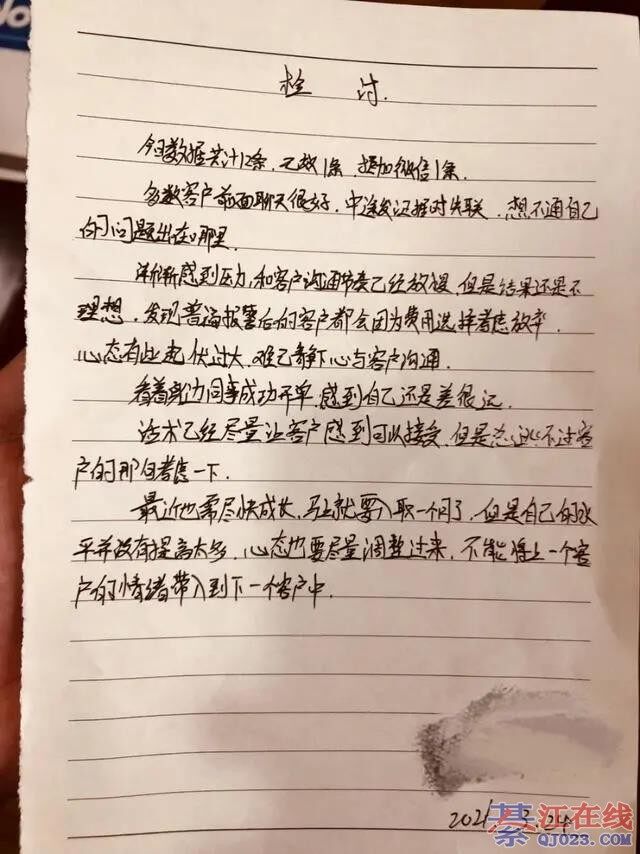 检 讨.
今日数据共计12条, 无效1条, 添加微信1条.
多数客户前面聊天很好, 中途发证据时失联, 想不通自己
的问题出在哪里.
渐渐感到压力, 和客户沟通节奏已经放慢, 但是结果还是不
理想, 发现普通报警后的客户都会因为费用选择考虑放弃.
心态有些起伏过大, 难已静下心与客户沟通.
看着身边同事成功开单, 感到自己还是差很远.
话术已经尽量让客户感到可以接受, 但是总逃不过客
户的那句考虑一下.
最近也需尽快成长, 马上就要入职一个月了, 但是自己的水
平并没有提高太多, 心态也要尽量调整过来, 不能将上一个客
户的情绪带入到下一个客户中.
2021 3.24
綦江在线
QJ023.COM